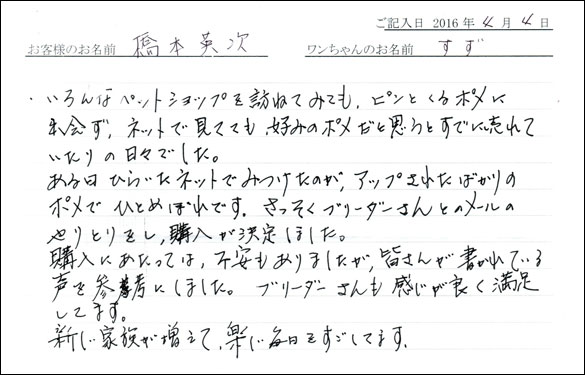 ご記入日 2016年 4月 4日
お客様のお名前 橋本英次 ワンちゃんのお名前 すず
・いろんなペットショップを訪ねてみても、ピンとくるポメに
出会ず、ネットで見てても、好みのポメだと思うとすでに売れて
いたりの日々でした。
ある日ひらいたネットでみつけたのが、アップされたばかりの
ポメでひとめぼれです。さっそくブリーダーさんとのメールの
やりとりをし、購入が決定しました。
購入にあたっては、不安もありましたが、皆さんが書かれている
声を参考にしました。ブリーダーさんも感じが良く満足
してます。
新しい家族が増えて、楽しい毎日をすごしてます。